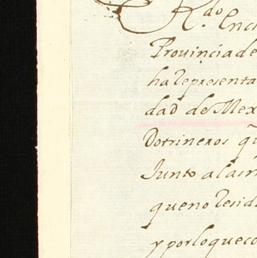 R.do
Provinçia de
ha Representa
dad de Mex
Dotrineros q
Junto a las
que no Resid
y por lo que co